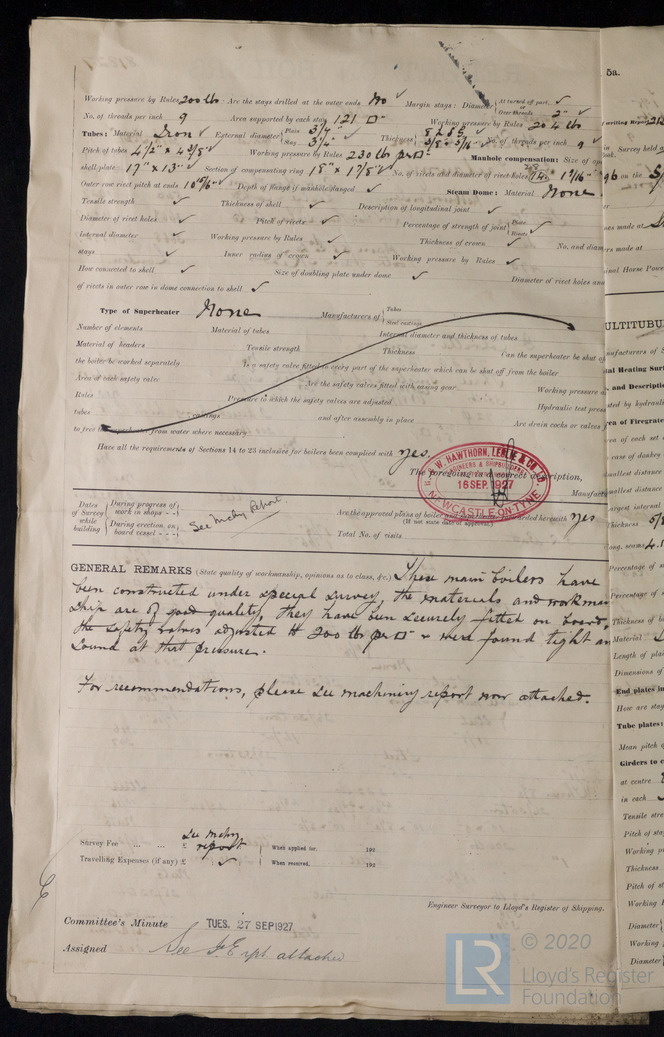 Working pressure by Rules 200 lb Are the stays drilled at the outer ends No Margin stays: Diameter { At turned off part, Over threads 2"
No. of threads per inch 9 Area supported by each stay 121 □" Working pressure by Rules 204 lb
Tubes: Material Iron External diameter { Plain 3 1/4" Stay 3 1/4" Thickness { 8 & 6 5/16" No. of threads per inch 9
Pitch of tubes 4 1/2" x 4 3/8" Working pressure by Rules 230 lb per □" Manhole compensation: Size of
shell plate 17" x 13" Section of compensating ring 18" x 1 7/8" No. of rivets and diameter of rivet holes 1 7/16"
Outer row rivet pitch at ends 10 15/16" Depth of flange if manhole flanged Steam Dome: Material None
Tensile strength Thickness of shell Description of longitudinal joint
Diameter of rivet holes Pitch of rivets Percentage of strength of joint { Plate Rivets
Internal diameter Working pressure by Rules Thickness of crown No. and
stays Inner radius of crown Working pressure by Rules
How connected to shell Size of doubling plate under dome Diameter of rivet holes and
of rivets in outer row in dome connection to shell
Type of Superheater None Manufacturers of { Tubes Steel castings
Number of elements Material of tubes Internal diameter and thickness of tubes
Material of headers Tensile strength Thickness Can the superheater be shut off
the boiler be worked separately Is a safety valve fitted to every part of the superheater which can be shut off from the boiler
Area of each safety valve Are the safety valves fitted with easing gear Working pressure
Rules Pressure to which the safety valves are adjusted Hydraulic test
tubes castings and after assembly in place Are drain cocks or valves
to free the superheater from water where necessary
Have all the requirements of Sections 14 to 23 inclusive for boilers been complied with Yes.
The foregoing is a correct description,
R. & W. HAWTHORN, LESLIE & CO. LTD.
ENGINEERS & SHIPBUILDERS
16 SEP. 1927
NEWCASTLE-ON-TYNE
Manufact
Dates of Survey while building { During progress of work in shops - - During erection on board vessel - - - See Mchy Report.
Are the approved plans of boiler and forwarded herewith Yes
(If not state date of approval.)
Total No. of visits
GENERAL REMARKS (State quality of workmanship, opinions as to class, &c.) These main boilers have
been constructed under special survey, the materials and workman
ship are of good quality, they have been securely fitted on board,
the safety valves adjusted to 200 lb per □" & were found tight an
sound at that pressure.
For recommendations, please see machinery report now attached.
Survey Fee ... ... £ See Mchy report. When applied for, 192
Travelling Expenses (if any) £ When received, 192
Engineer Surveyor to Lloyd's Register of Shipping.
Committee's Minute TUES. 27 SEP 1927
Assigned See F.E. rpt attached
LR © 2020
Lloyd's Register
Foundation
5a.
ULTITUBU